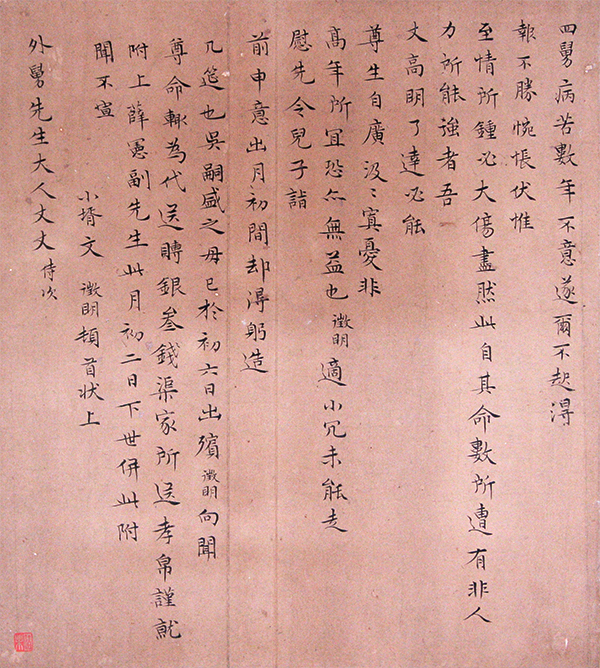 四舅病苦數年不意遂爾不起得
報不勝惋悵伏惟
至情所鍾必大傷盡然此自其命數所遭有非人
力所能強者吾
丈高明了達必能
尊生自廣汲〻寘憂非
高年所宜恐亦無益也徵明適小冗未能走
慰先令兒子詣
前申意出月初間却得躬造
几筵也吳嗣盛之母已於初六日出殯徵明向聞
尊命輒為代送賻銀叁錢渠家所送孝帛謹就
附上薛憲副先生此月初二日下世併此附
聞不宣
小壻文徵明頓首狀上
外舅先生大人丈丈侍次